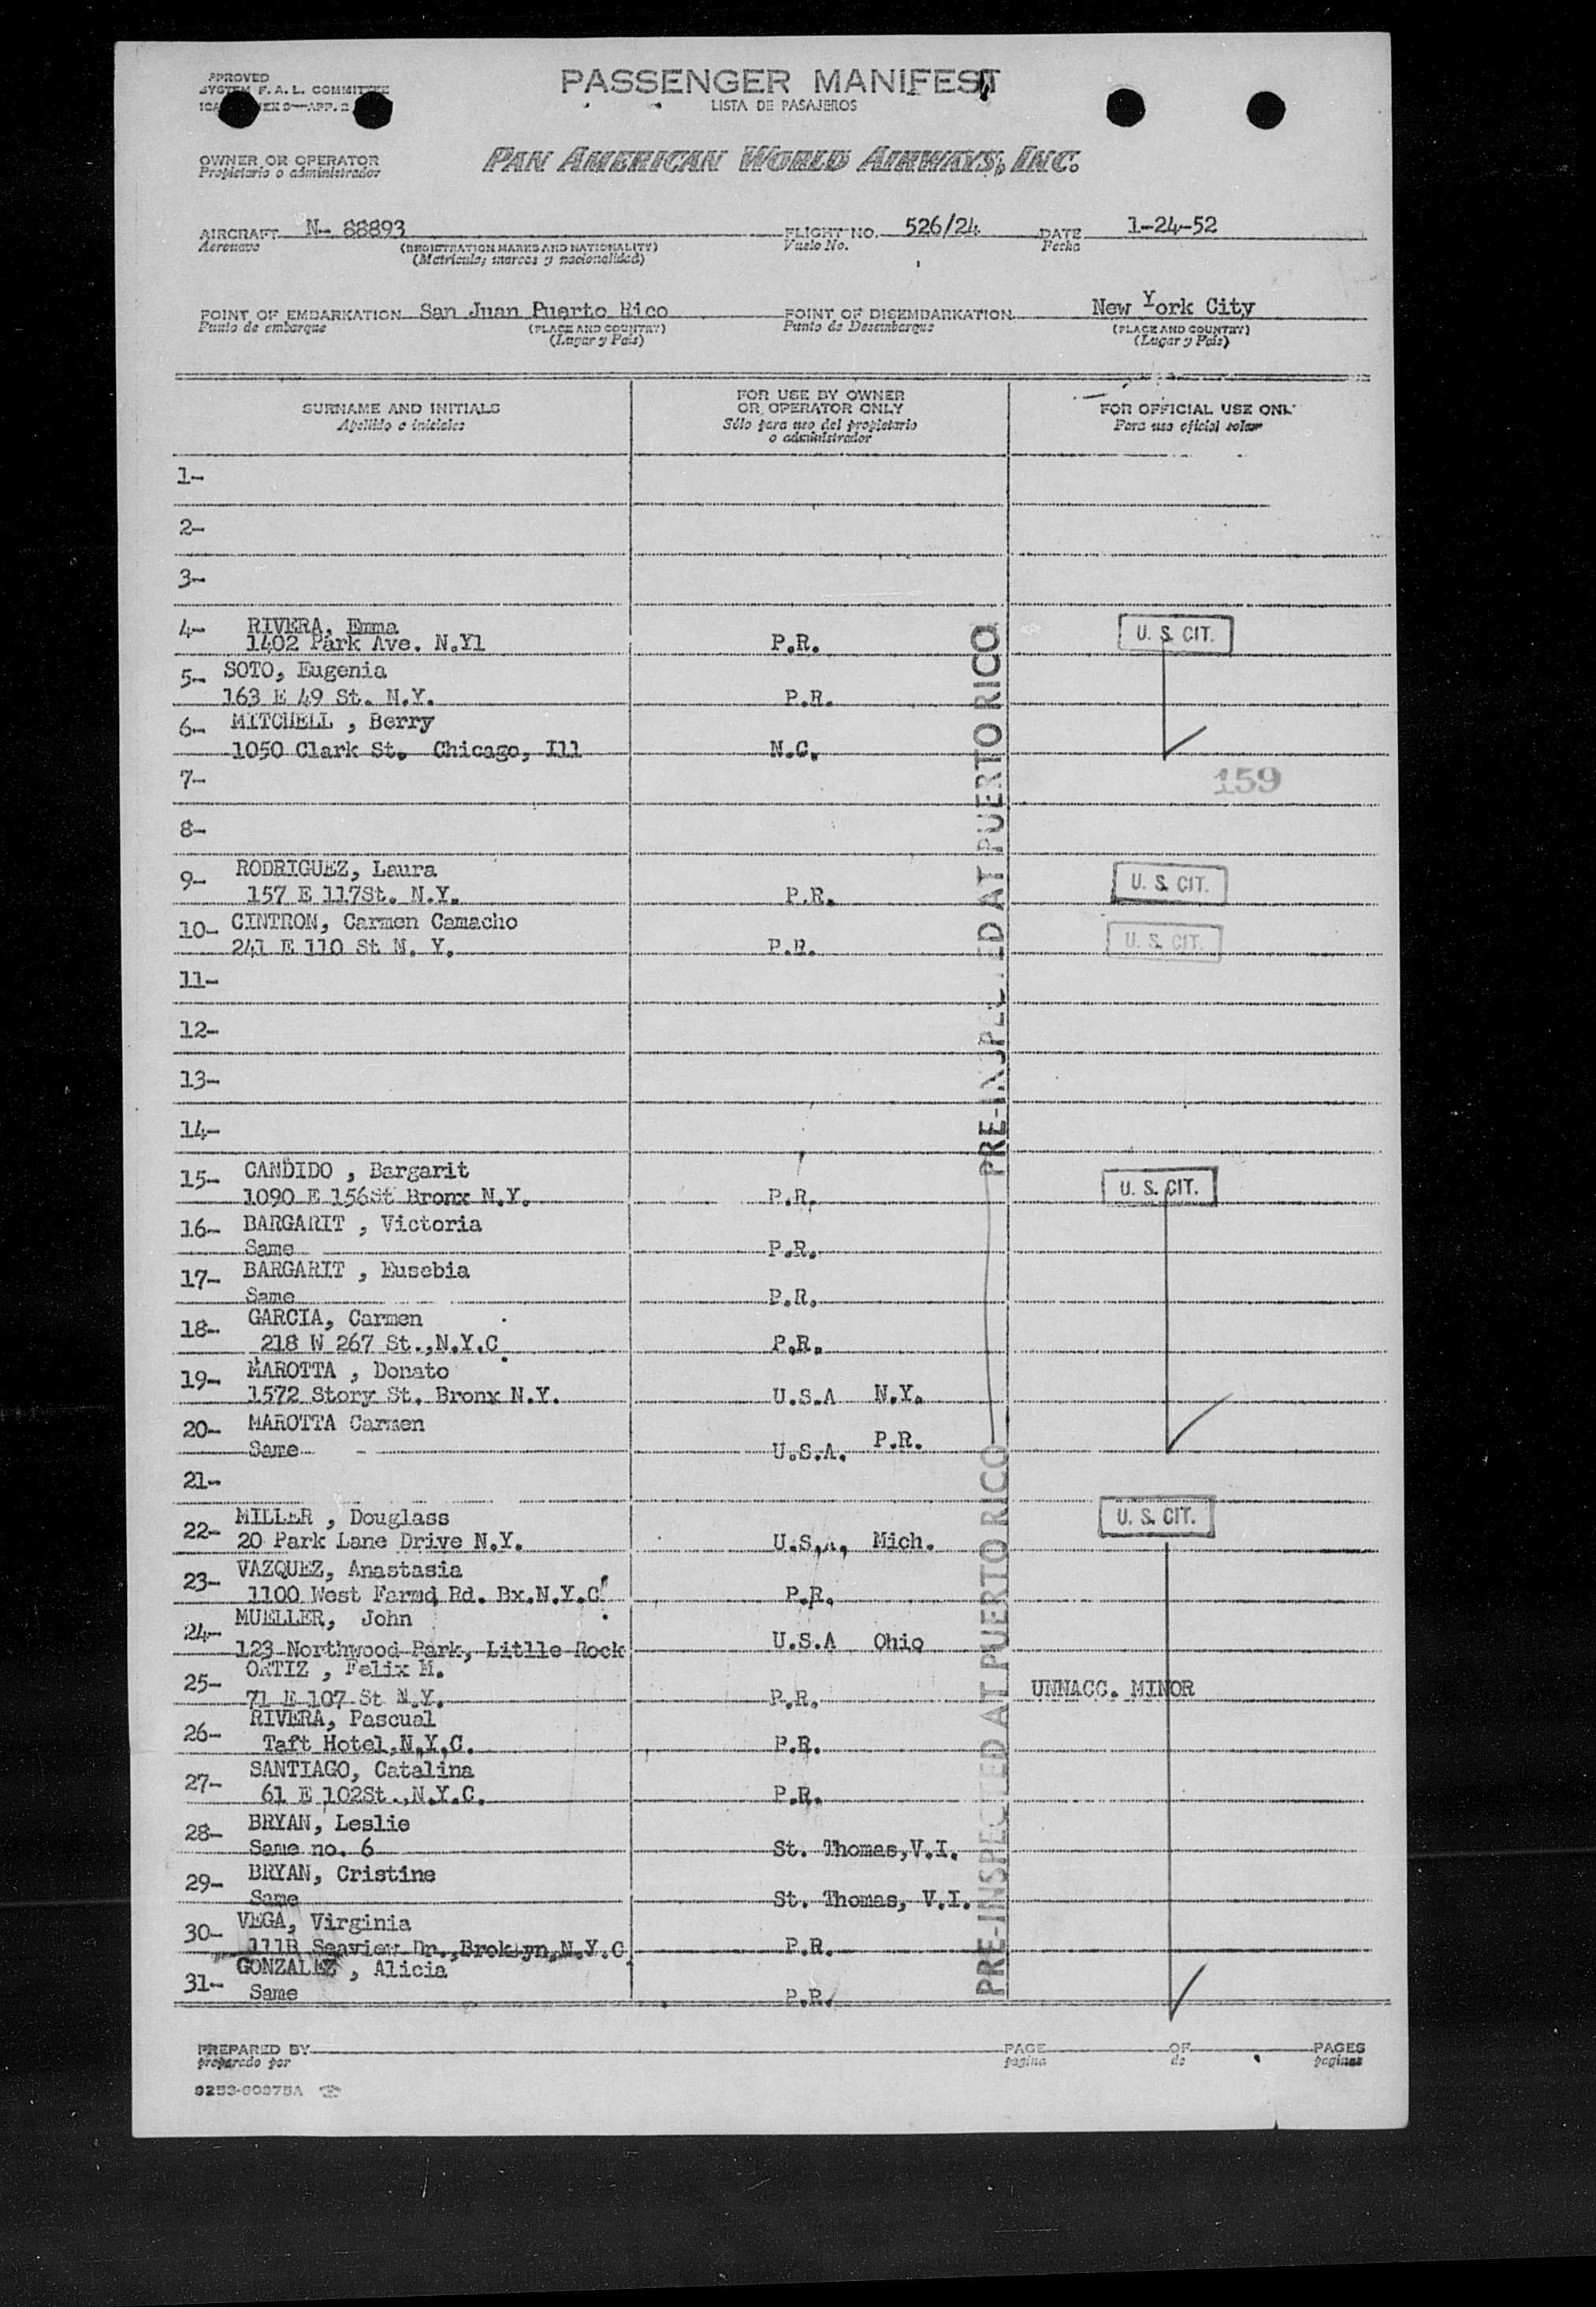 APPROVED
SYSTEM F.A.L. COMMITTEE
PASSENGER MANIFEST
LISTA DE PASAJEROS
OWNER OR OPERATOR
Propietario o administrador
PAN AMERICAN WORLD AIRWAYS, INC.
AIRCRAFT N- 88893 FLIGHT NO. 526/24 DATE 1-24-52
Aeronave (REGISTRATION MARKS AND NATIONALITY) Vuelo No. Fecha
(Matricula; marcas y nacionalidad)
POINT OF EMBARKATION San Juan Puerto Rico POINT OF DISEMBARKATION New York City
Punto de embarque (PLACE AND COUNTRY) Punto de Desembarque (PLACE AND COUNTRY)
(Lugar y País) (Lugar y País)
SURNAME AND INITIALS
Apellido e iniciales
FOR USE BY OWNER
OR OPERATOR ONLY
Sólo para uso del propietario
o administrador
FOR OFFICIAL USE ONL
Para uso oficial solam
1-
2-
3-
4- RIVERA, Emma
1402 Park Ave. N.Y1 P.R. U. S. CIT.
5- SOTO, Eugenia
163 E 49 St. N.Y. P.R.
6- MITCHELL , Berry
1050 Clark St. Chicago, Ill N.C.
7- 159
8-
9- RODRIGUEZ, Laura
157 E 117St. N.Y. P.R. U. S. CIT.
10- CINTRON, Carmen Camacho
241 E 110 St N. Y. P.R. U. S. CIT.
11-
12-
13-
14-
PRE-INSPECTED AT PUERTO RICO
15- CANDIDO , Bargarit
1090 E 156St Bronx N.Y. P.R. U. S. CIT.
16- BARGARIT , Victoria
Same P.R.
17- BARGARIT , Eusebia
Same P.R.
18- GARCIA, Carmen
218 W 267 St.,N.Y.C P.R.
19- MAROTTA , Donato
1572 Story St. Bronx N.Y. U.S.A N.Y.
20- MAROTTA Carmen
Same U.S.A. P.R.
21-
22- MILLER , Douglass
20 Park Lane Drive N.Y. U.S.A. Mich. U. S. CIT.
23- VAZQUEZ, Anastasia
1100 West Farmd Rd. Bx.N.Y.C. P.R.
24- MUELLER, John
123 Northwood Park, Litlle Rock U.S.A Ohio
25- ORTIZ , Felix M.
71 E 107 St N.Y. P.R. UNNACC. MINOR
26- RIVERA, Pascual
Taft Hotel,N.Y.C. P.R.
27- SANTIAGO, Catalina
61 E 102St.,N.Y.C. P.R.
28- BRYAN, Leslie
Same no. 6 St. Thomas,V.I.
29- BRYAN, Cristine
Same St. Thomas, V.I.
30- VEGA, Virginia
111B Seaview Dr.,Broklyn,N.Y.C. P.R.
31- GONZALEZ , Alicia
Same P.R.
PRE-INSPECTED AT PUERTO RICO
PREPARED BY PAGE OF PAGES
preparado por pagina de paginas